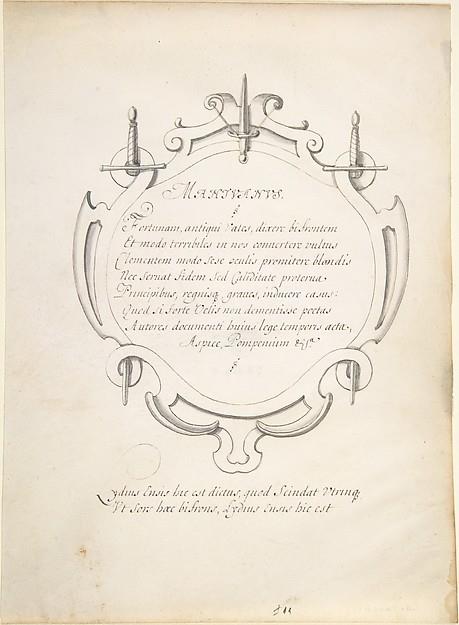 MANTVANVS.
Fortunam, antiqui Vates, dixere bifrontem
Et modo terribiles in nos conuertere vultus
Clementem modo sese oculis promitere blandis
Nec Seruat fidem Sed Caliditate proterua
Principibus, regnisq; graues, inducere casus:
Quod Si forte Velis non dementisse poetas
Autores documenti huius lege temporis acta,
Aspice, Pompenium &ca.
Lydius Ensis hic est dictus, quod Scindat Vtrinq;
Vt Sors hæc bifrons, Lydius Ensis hic est